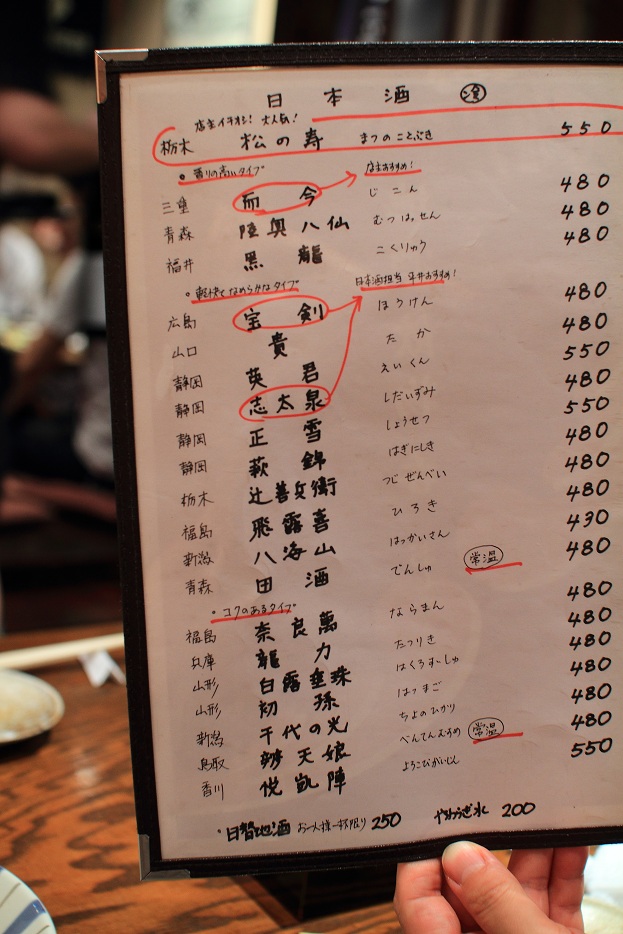 日本酒
店主イチオシ! 大人気!
栃木 松の寿 まつのことぶき 550
• 香りの高いタイプ 店主おすすめ!
三重 而今 じこん 480
青森 陸奥八仙 むつはっせん 480
福井 黒龍 こくりゅう 480
• 軽快でなめらかなタイプ 日本酒担当 平井おすすめ!
広島 宝剣 ほうけん 480
山口 貴 たか 480
静岡 英君 えいくん 550
静岡 志太泉 しだいずみ 480
静岡 正雪 しょうせつ 550
静岡 萩錦 はぎにしき 480
栃木 辻善兵衛 つじぜんべい 480
福島 飛露喜 ひろき 480
新潟 八海山 はっかいさん 430
青森 田酒 でんしゅ 常温 480
• コクのあるタイプ
福島 奈良萬 ならまん 480
兵庫 龍力 たつりき 480
山形 白露垂珠 はくろすいしゅ 480
山形 初孫 はつまご 480
新潟 千代の光 ちよのひかり 480
鳥取 辨天娘 べんてんむすめ 常温 480
香川 悦凱陣 よろこびがいじん 550
• 日替地酒 お一人様一杯限り 250 やわらぎ水 200